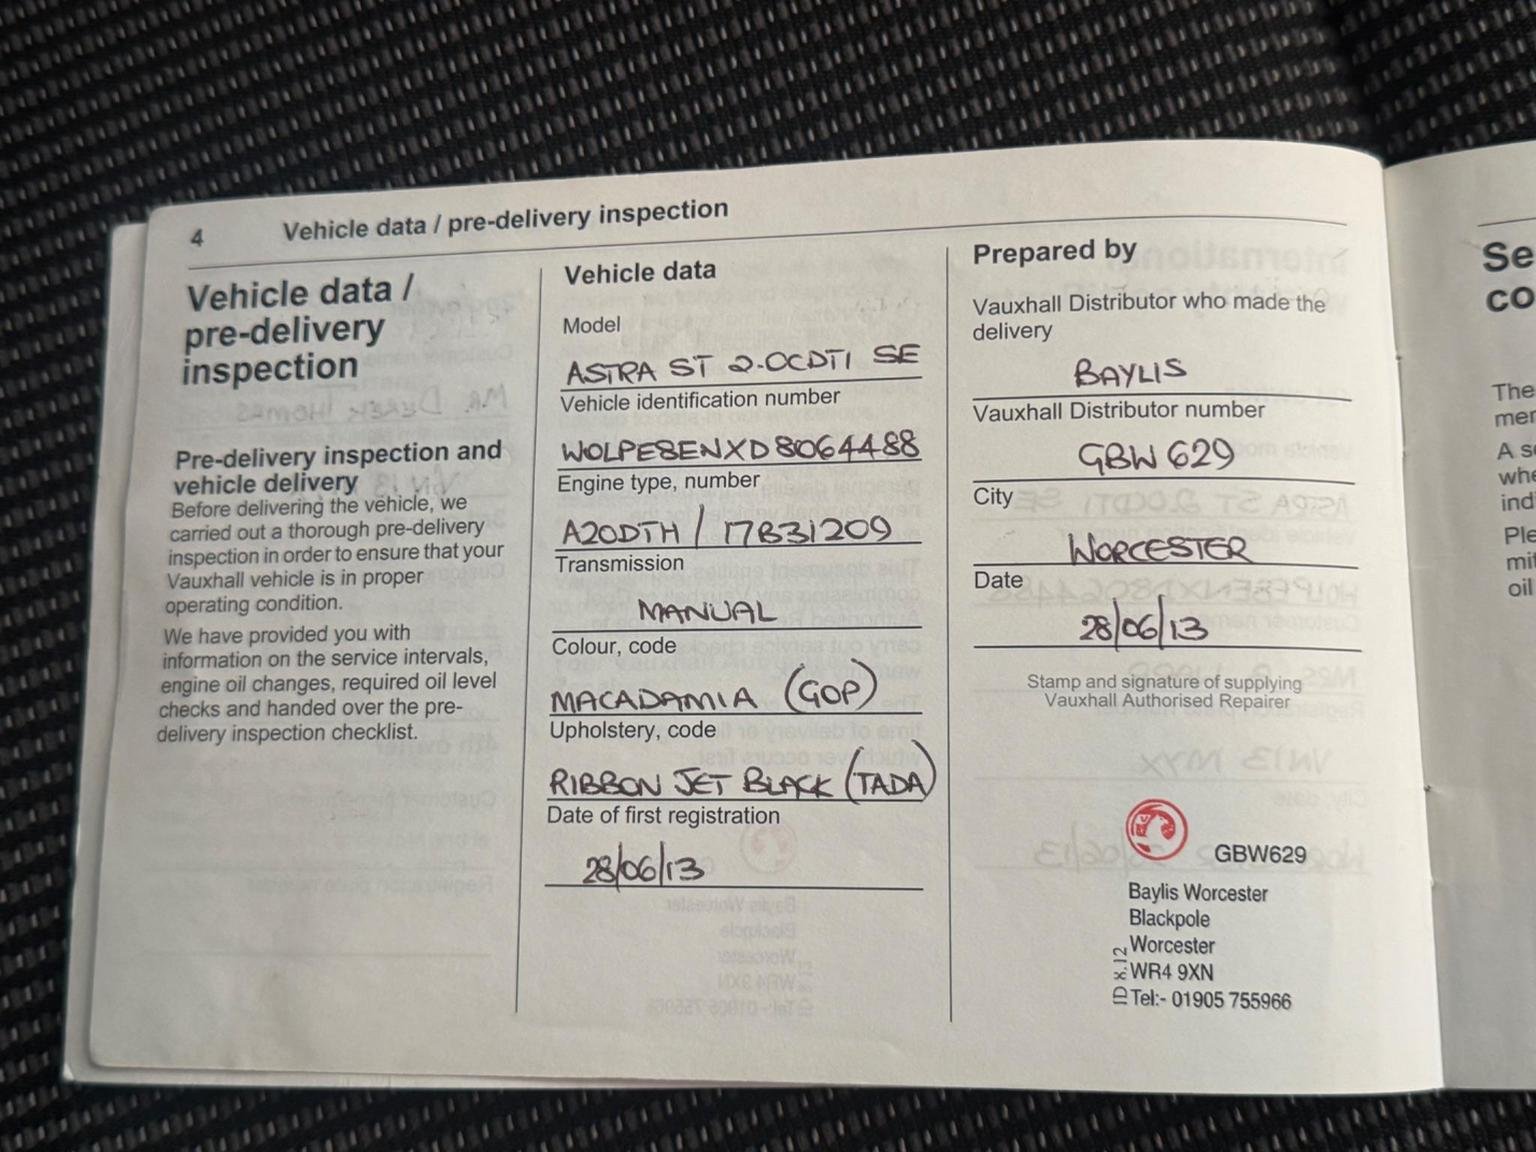 4
Vehicle data / pre-delivery inspection
Vehicle data /
pre-delivery
inspection
Pre-delivery inspection and
vehicle delivery
Before delivering the vehicle, we
carried out a thorough pre-delivery
inspection in order to ensure that your
Vauxhall vehicle is in proper
operating condition.
We have provided you with
information on the service intervals,
engine oil changes, required oil level
checks and handed over the pre-
delivery inspection checklist.
Vehicle data
Model
ASTRA ST 2.0CDTI SE
Vehicle identification number
WOLPE8ENXD8064488
Engine type, number
A20DTH / 17B31209
Transmission
MANUAL
Colour, code
MACADAMIA (GOP)
Upholstery, code
RIBBON JET BLACK (TADA)
Date of first registration
28/06/13
Prepared by
Vauxhall Distributor who made the
delivery
BAYLIS
Vauxhall Distributor number
GBW 629
City
WORCESTER
Date
28/06/13
Stamp and signature of supplying
Vauxhall Authorised Repairer
GBW629
Baylis Worcester
Blackpole
Worcester
WR4 9XN
Tel:- 01905 755966
ID x.12
Se
co
The
mer
A se
whe
ind
Ple
mit
oil